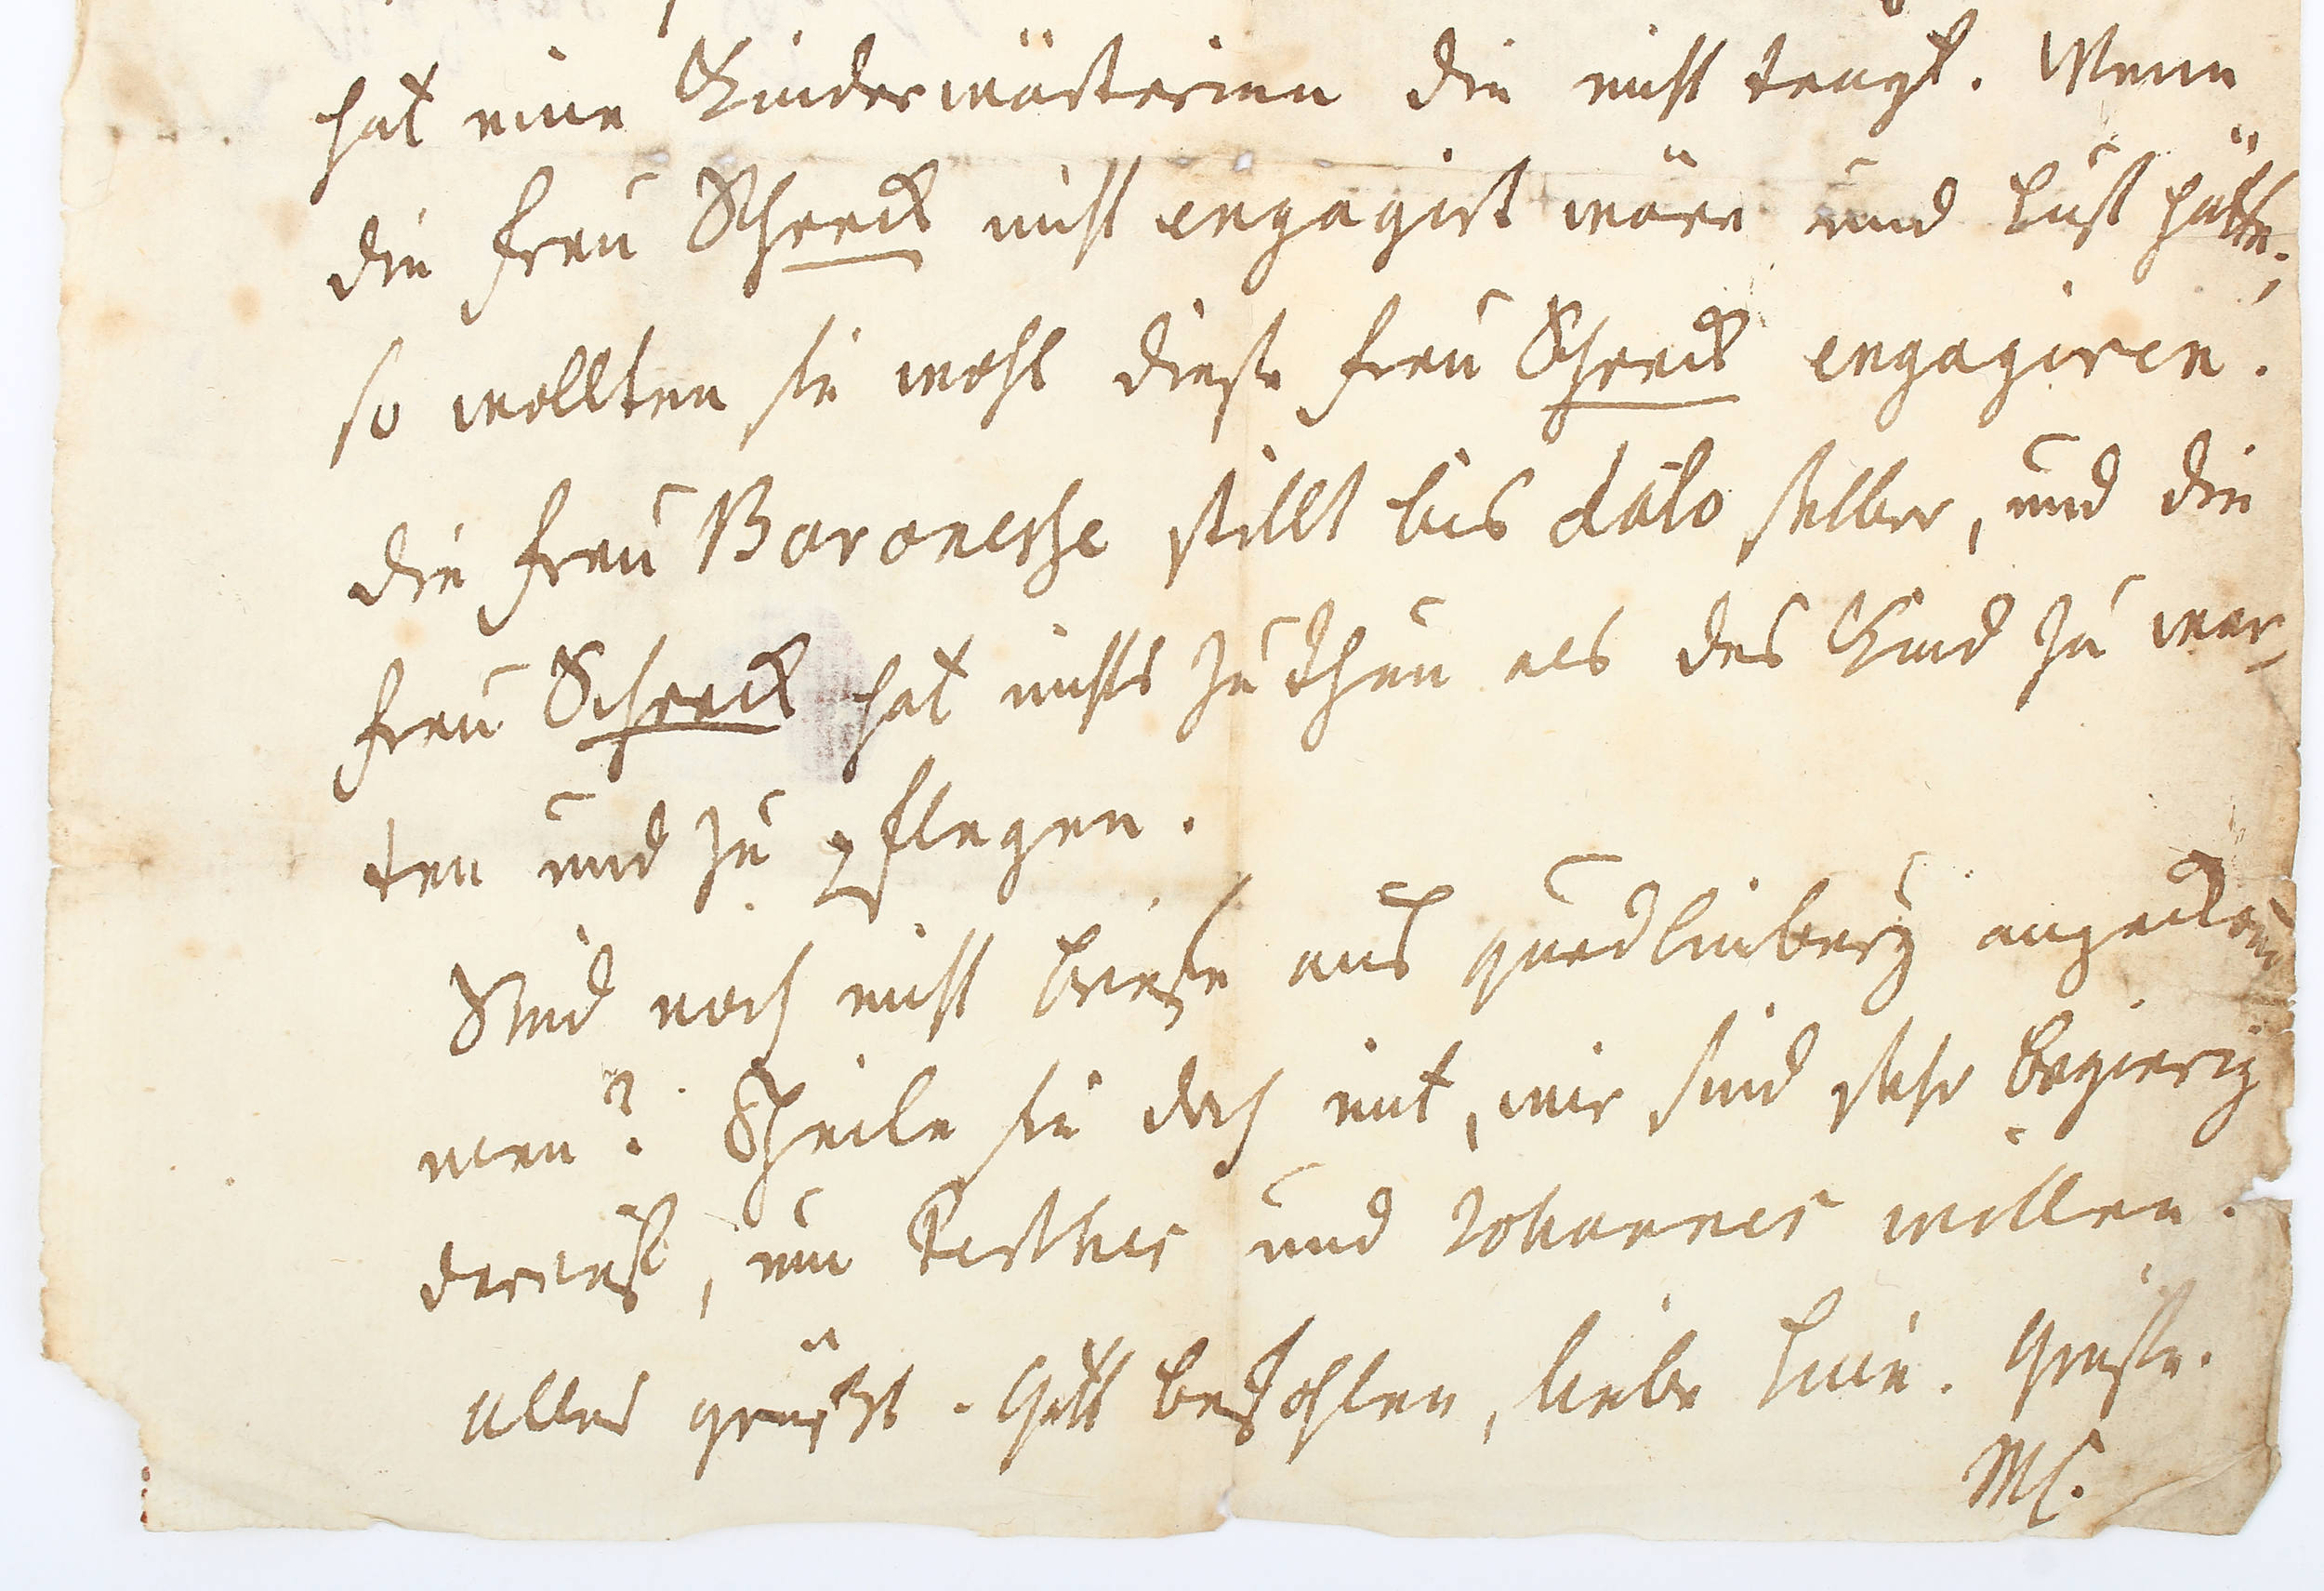 hat eine Kinderwärterinn die nicht taugt. Wenn
die Frau Schreck nicht engagirt wäre und Lust hätte;
so wollten sie wohl diese Frau Schreck engagiren.
die Frau Baronesse stillt bis dato selber, und die
Frau Schreck hat nichts zu thun als das Kind zu war-
ten und zu pflegen.
Sind noch nicht Briefe aus Quedlinburg angekom
men? Theile sie doch mit, wir sind sehr begierig
darauf, um Perthes und Johannes willen.
Alles grüßt. Gott befohlen, liebe Grüße.
MC.